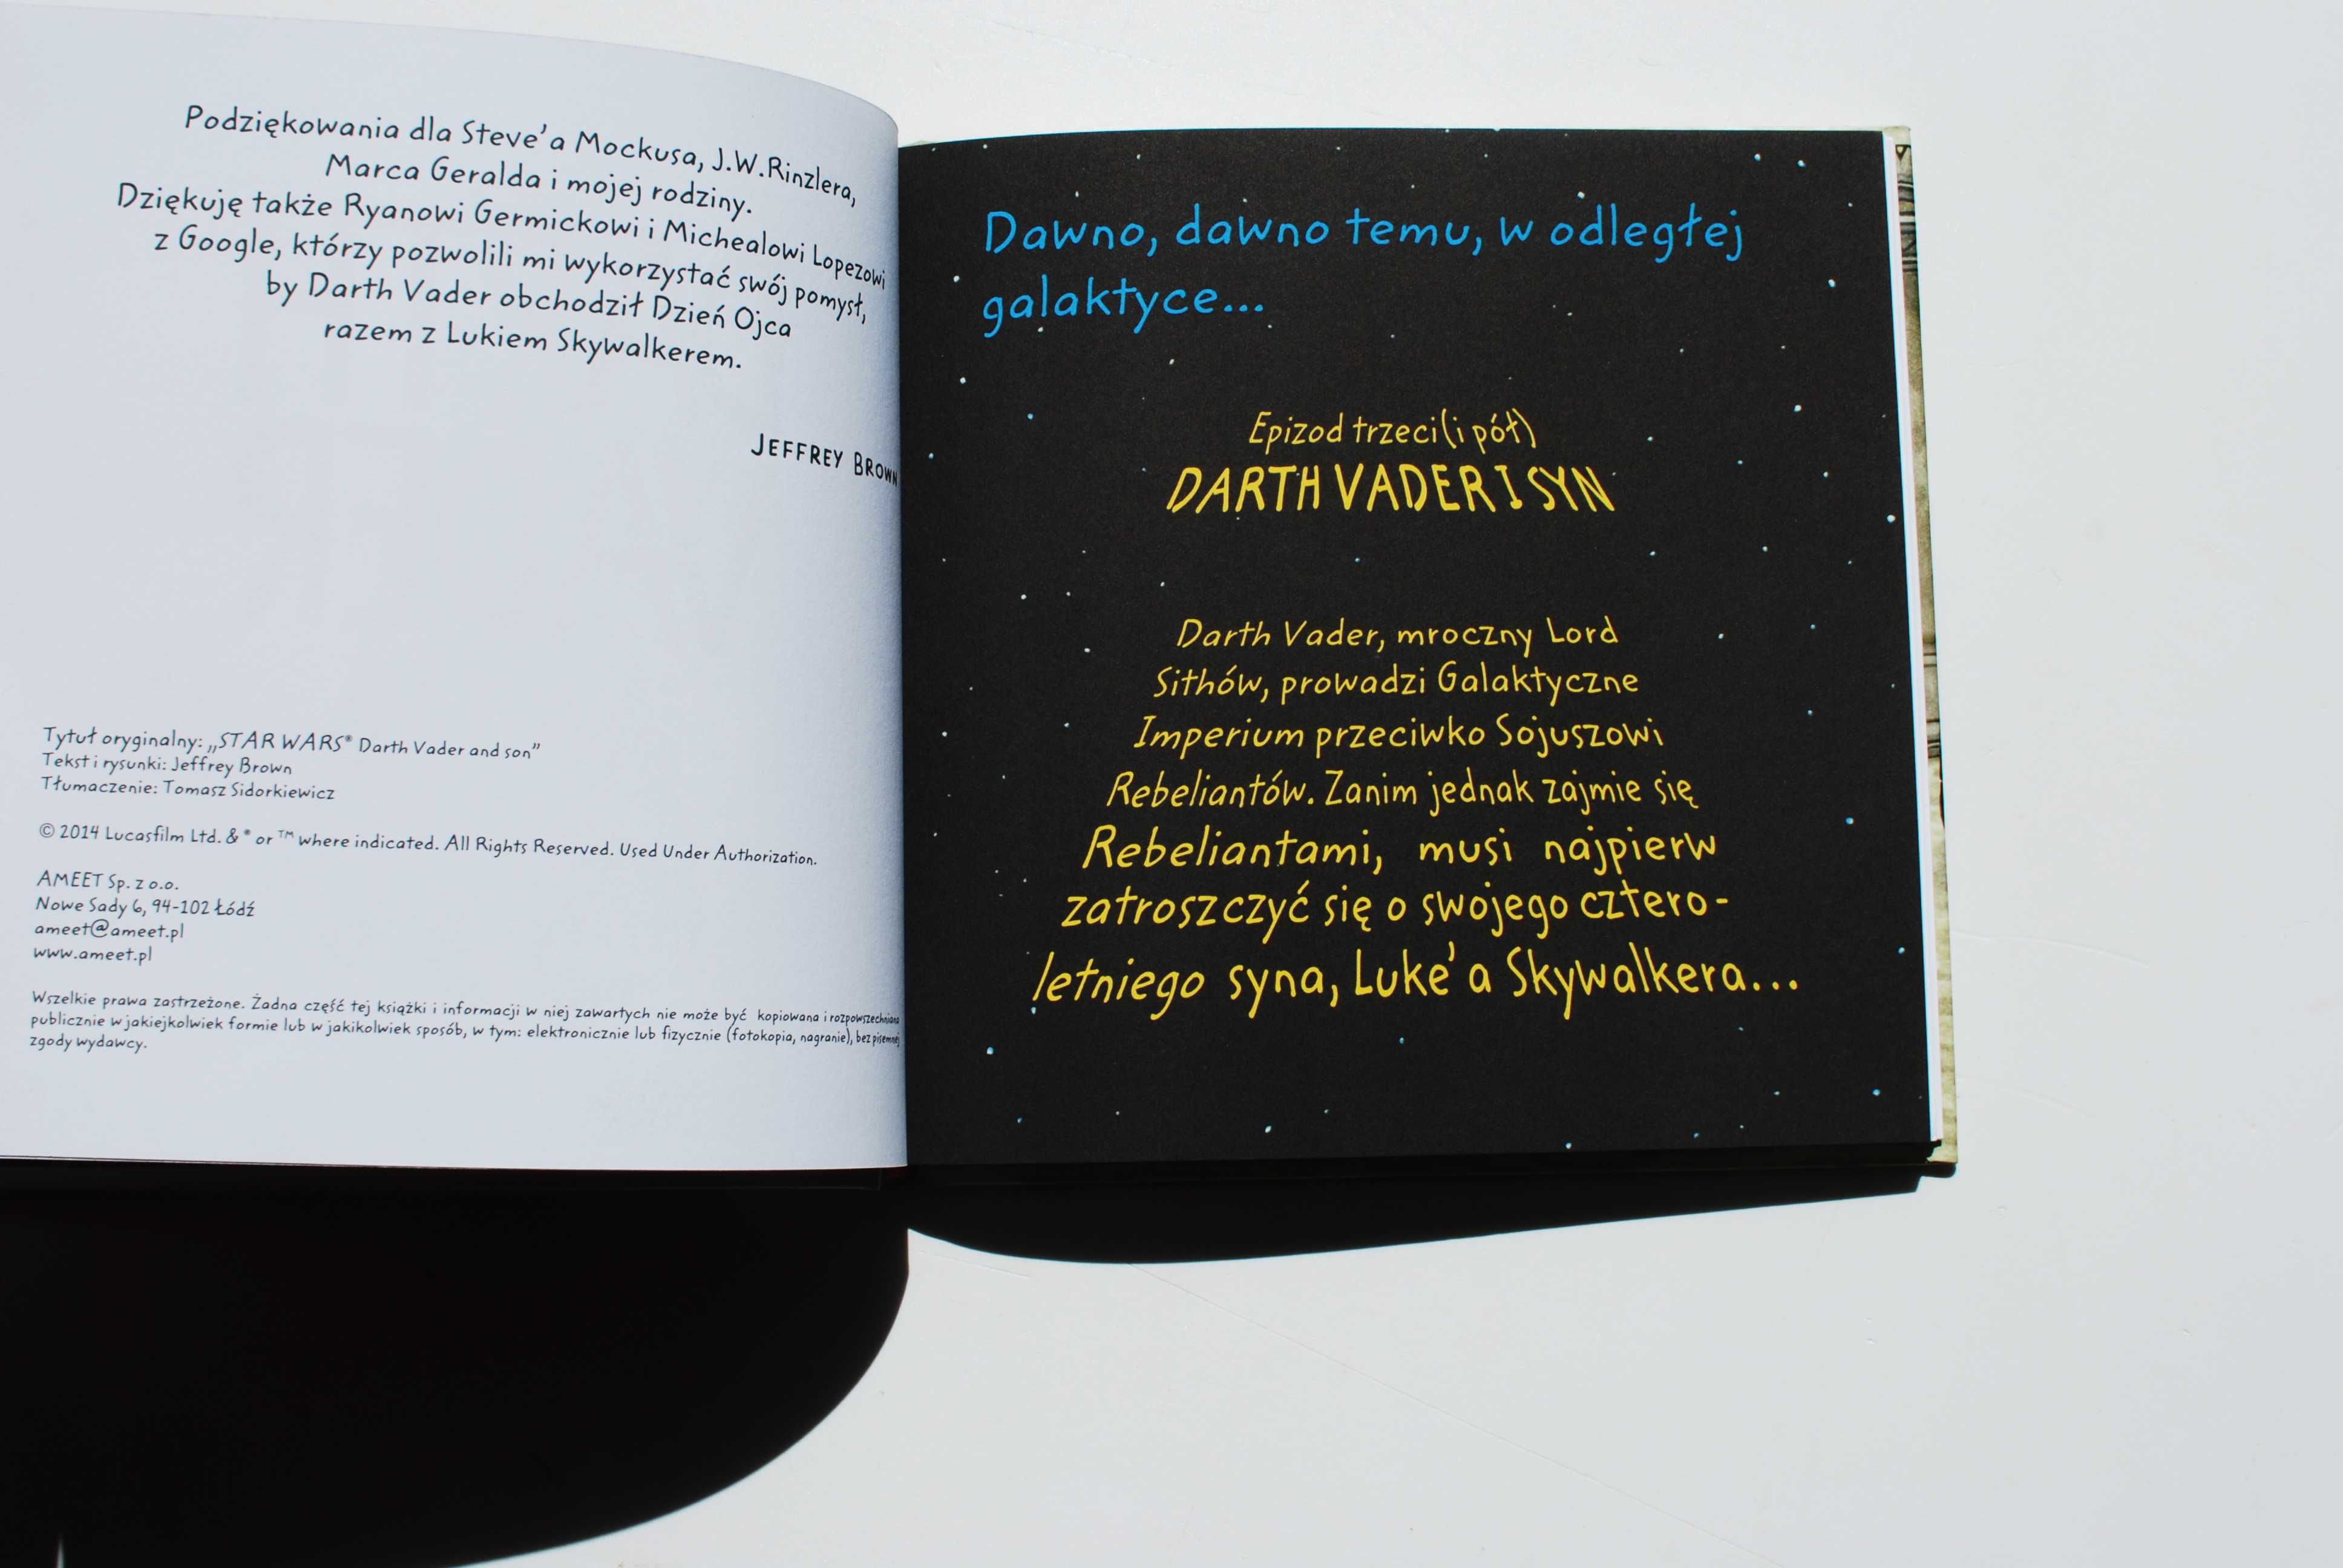 Podziękowania dla Steve'a Mockusa, J.W.Rinzlera,
Marca Geralda i mojej rodziny.
Dziękuję także Ryanowi Germickowi i Michealowi Lopezowi
z Google, którzy pozwolili mi wykorzystać swój pomysł,
by Darth Vader obchodził Dzień Ojca
razem z Lukiem Skywalkerem.
JEFFREY BROWN
Tytuł oryginalny: „STAR WARS® Darth Vader and son”
Tekst i rysunki: Jeffrey Brown
Tłumaczenie: Tomasz Sidorkiewicz
© 2014 Lucasfilm Ltd. & ® or ™ where indicated. All Rights Reserved. Used Under Authorization.
AMEET Sp. z o.o.
Nowe Sady 6, 94-102 Łódź
ameet@ameet.pl
www.ameet.pl
Wszelkie prawa zastrzeżone. Żadna część tej książki i informacji w niej zawartych nie może być kopiowana i rozpowszechniana
publicznie w jakiejkolwiek formie lub w jakikolwiek sposób, w tym: elektronicznie lub fizycznie (fotokopia, nagranie), bez pisemnej
zgody wydawcy.
Dawno, dawno temu, w odległej
galaktyce...
Epizod trzeci (i pół)
DARTH VADER I SYN
Darth Vader, mroczny Lord
Sithów, prowadzi Galaktyczne
Imperium przeciwko Sojuszowi
Rebeliantów. Zanim jednak zajmie się
Rebeliantami, musi najpierw
zatroszczyć się o swojego cztero-
letniego syna, Luke'a Skywalkera...